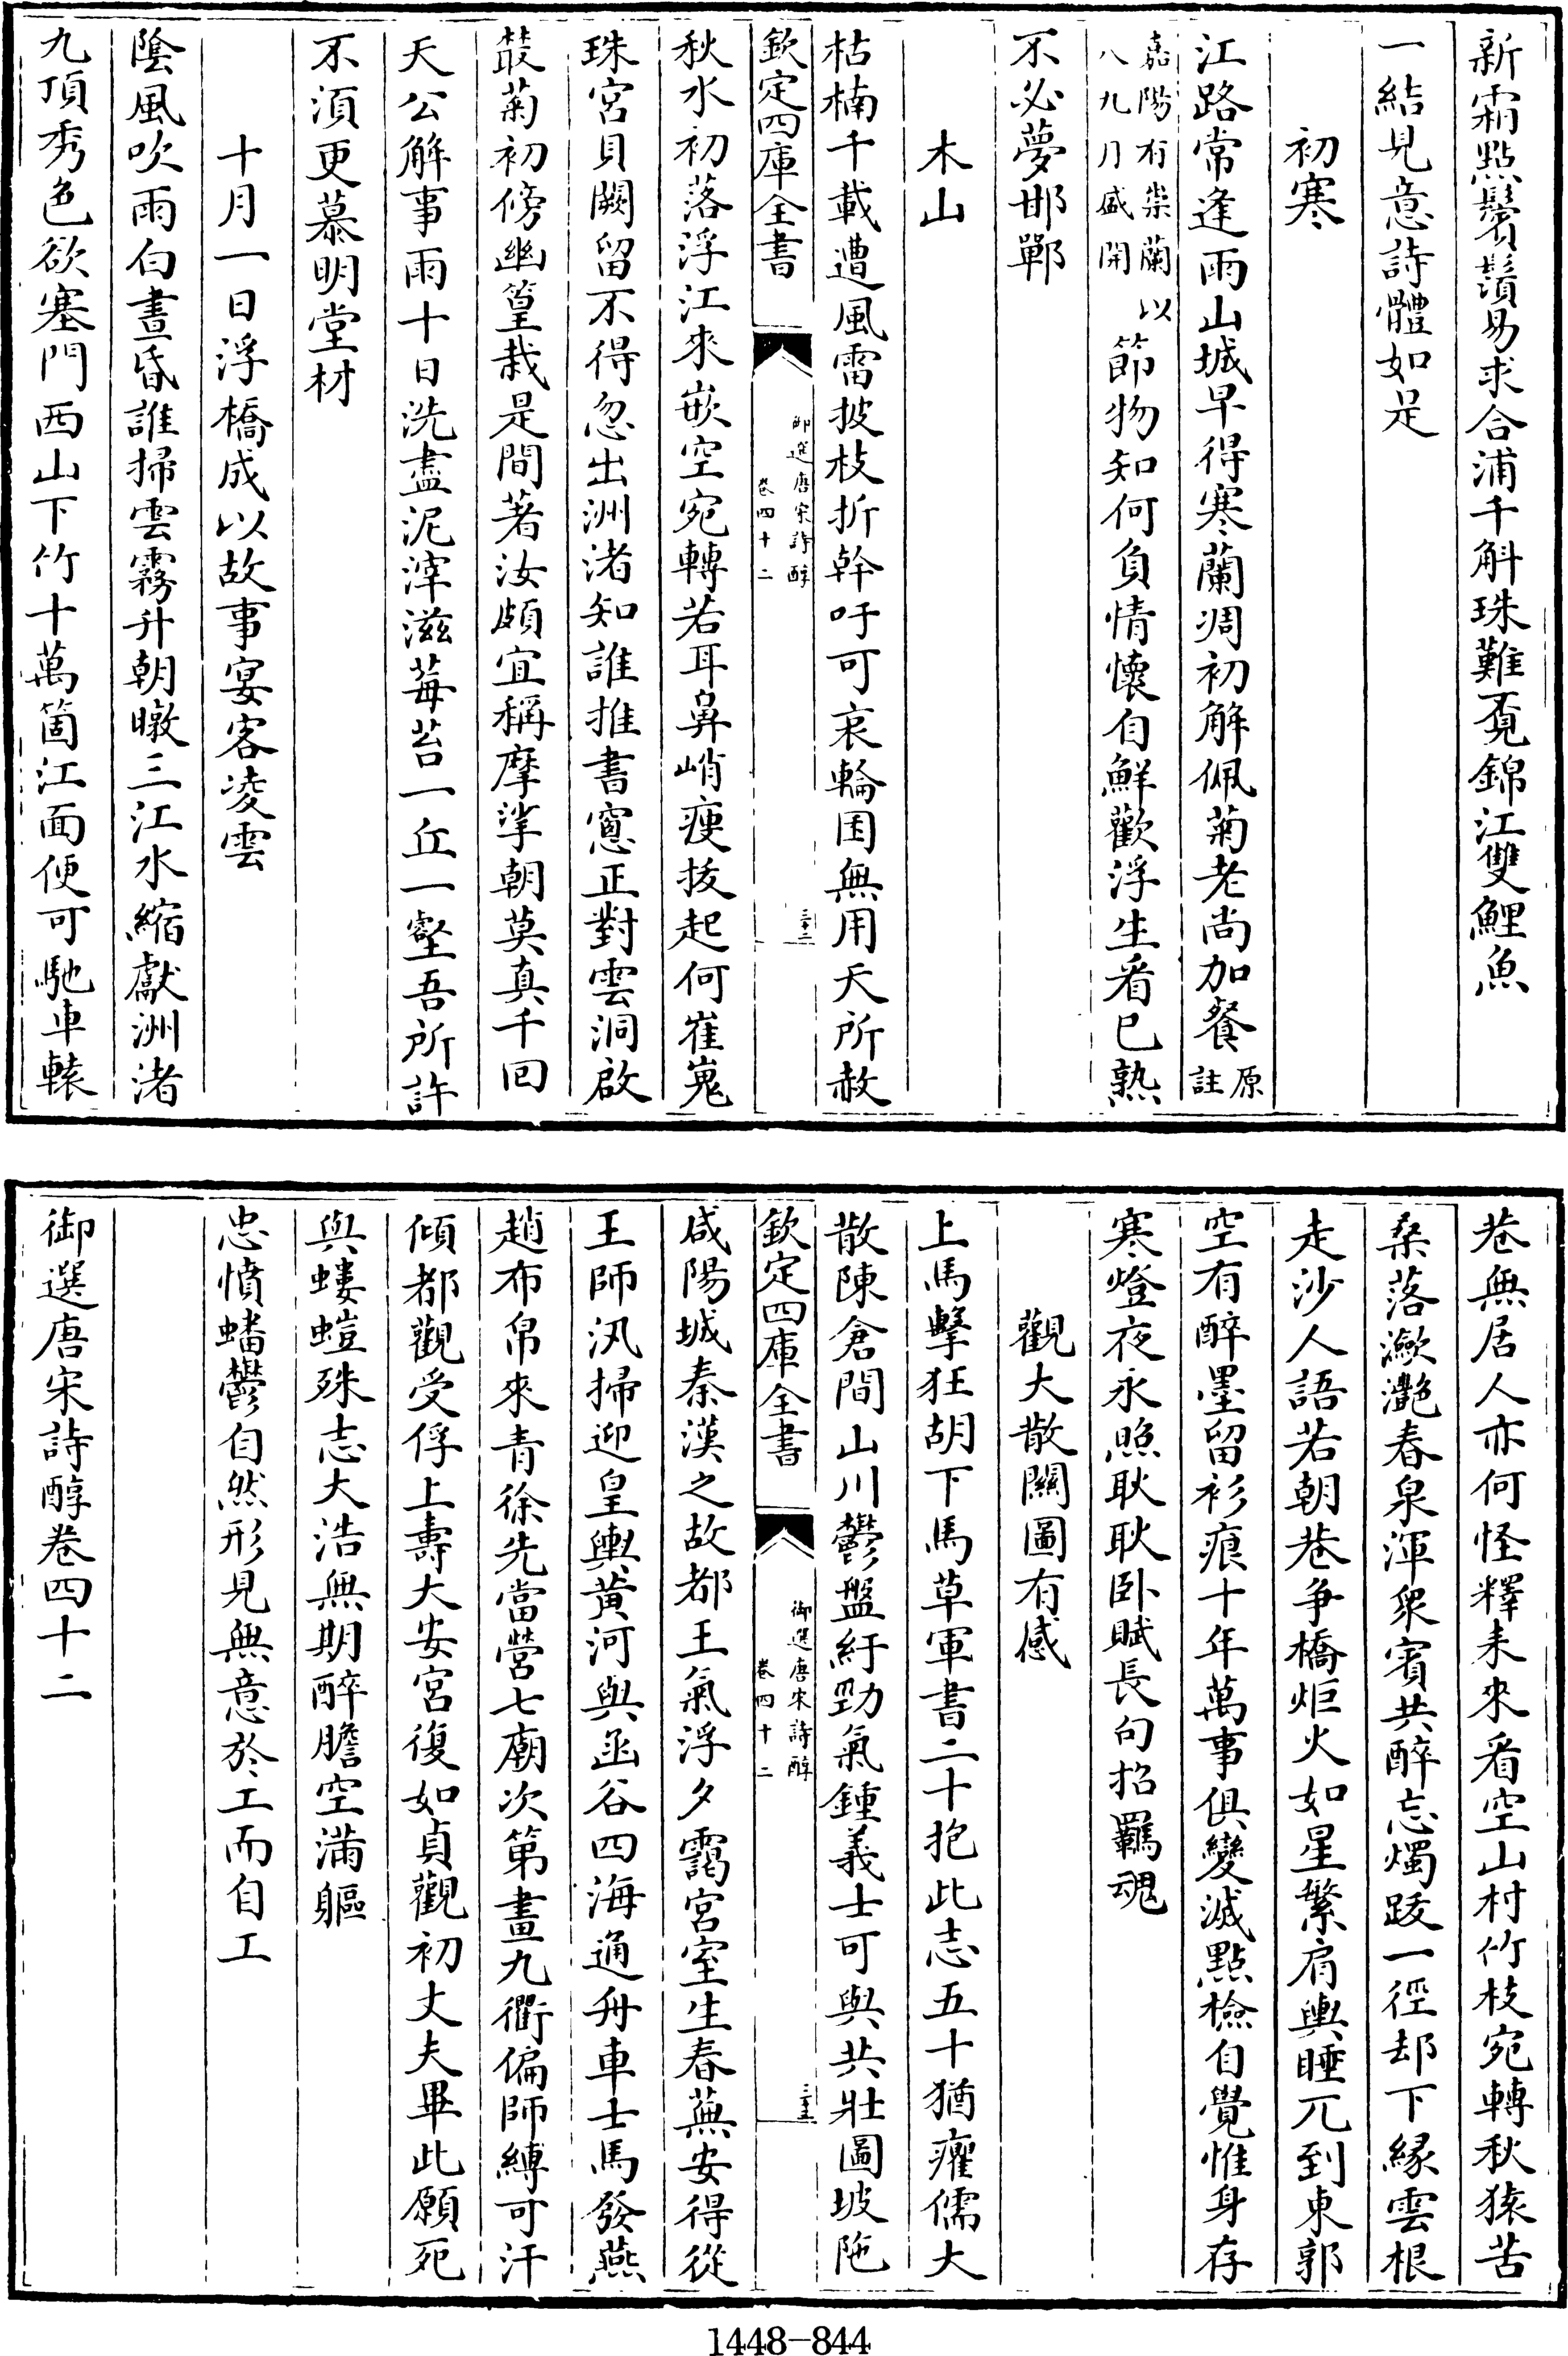 新霜點鬢鬚易求合浦千斛珠難覔錦江雙鯉魚
一結見意詩體如是
初寒
江路常逢雨山城早得寒蘭凋初解佩菊老尚加餐原註
嘉陽有崇蘭以八九月盛開節物知何負情懷自鮮歡浮生看已熟
不必夢邯鄲
木山
枯楠千載遭風雷披枝折幹吁可哀輪囷無用天所赦
欽定四庫全書
御選唐宋詩醇
卷四十二
三十二
秋水初落浮江來嵌空宛轉若耳鼻峭瘦拔起何崔嵬
珠宮貝闕留不得忽出洲渚知誰推書窻正對雲洞啟
叢菊初傍幽篁栽是間著汝頗宜稱摩挲朝莫真千回
天公解事雨十日洗盡泥滓滋莓苔一丘一壑吾所許
不須更慕明堂材
十月一日浮橋成以故事宴客凌雲
陰風吹雨白晝昏誰掃雲霧升朝暾三江水縮獻洲渚
九頂秀色欲塞門西山下竹十萬箇江面便可馳車轅
巷無居人亦何怪釋耒來看空山村竹枝宛轉秋猿苦
桑落瀲灧春泉渾衆賓共醉忘燭跋一徑却下緣雲根
走沙人語若朝巷爭橋炬火如星繁肩輿睡兀到東郭
空有醉墨留衫痕十年萬事俱變滅點檢自覺惟身存
寒燈夜永照耿耿卧賦長句招羈魂
觀大散關圖有感
上馬擊狂胡下馬草軍書二十抱此志五十猶癯儒大
散陳倉間山川鬱盤紆勁氣鍾義士可與共壯圖坡陁
欽定四庫全書
御選唐宋詩醇
卷四十二
三十三
咸陽城秦漢之故都王氣浮夕靄宮室生春蕪安得從
王師汛掃迎皇輿黃河與函谷四海通舟車士馬發燕
趙布帛來青徐先當營七廟次第畫九衢偏師縛可汗
傾都觀受俘上壽大安宮復如貞觀初丈夫畢此願死
與螻螘殊志大浩無期醉膽空滿軀
忠憤蟠鬱自然形見無意於工而自工
御選唐宋詩醇卷四十二
1448-844